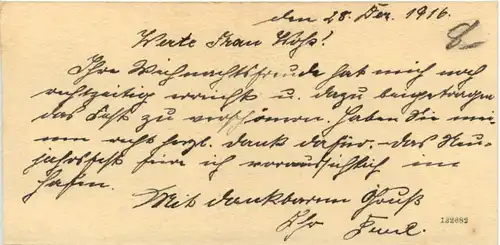 den 28. Dez. 1916.
Werte Frau Hoß!
Ihre Weihnachtsfreude hat mich noch
rechtzeitig erreicht u. dazu beigetragen
das Fest zu verschönern. Haben Sie mei-
nen recht herzl. Dank dafür. Das Neu-
jahrsfest feire ich voraussichtlich im
Hafen.
Mit dankbarem Gruß
Ihr
132682